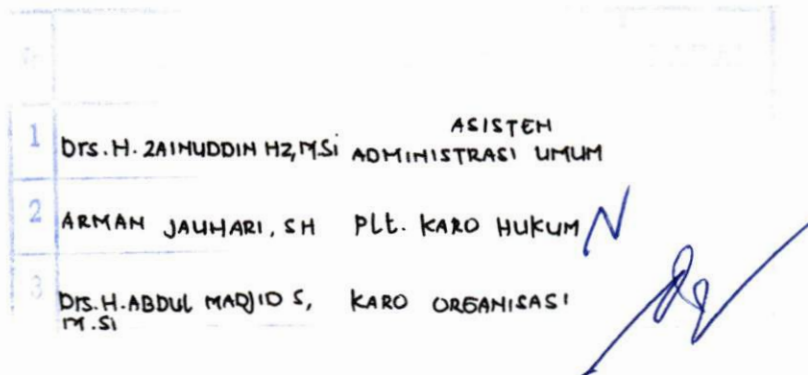 1 Drs. H. ZAINUDDIN HZ, M.Si ASISTEN ADMINISTRASI UMUM
2 ARMAN JAUHARI, SH Plt. KARO HUKUM
3 Drs. H. ABDUL MADJID S, M.Si KARO ORGANISASI